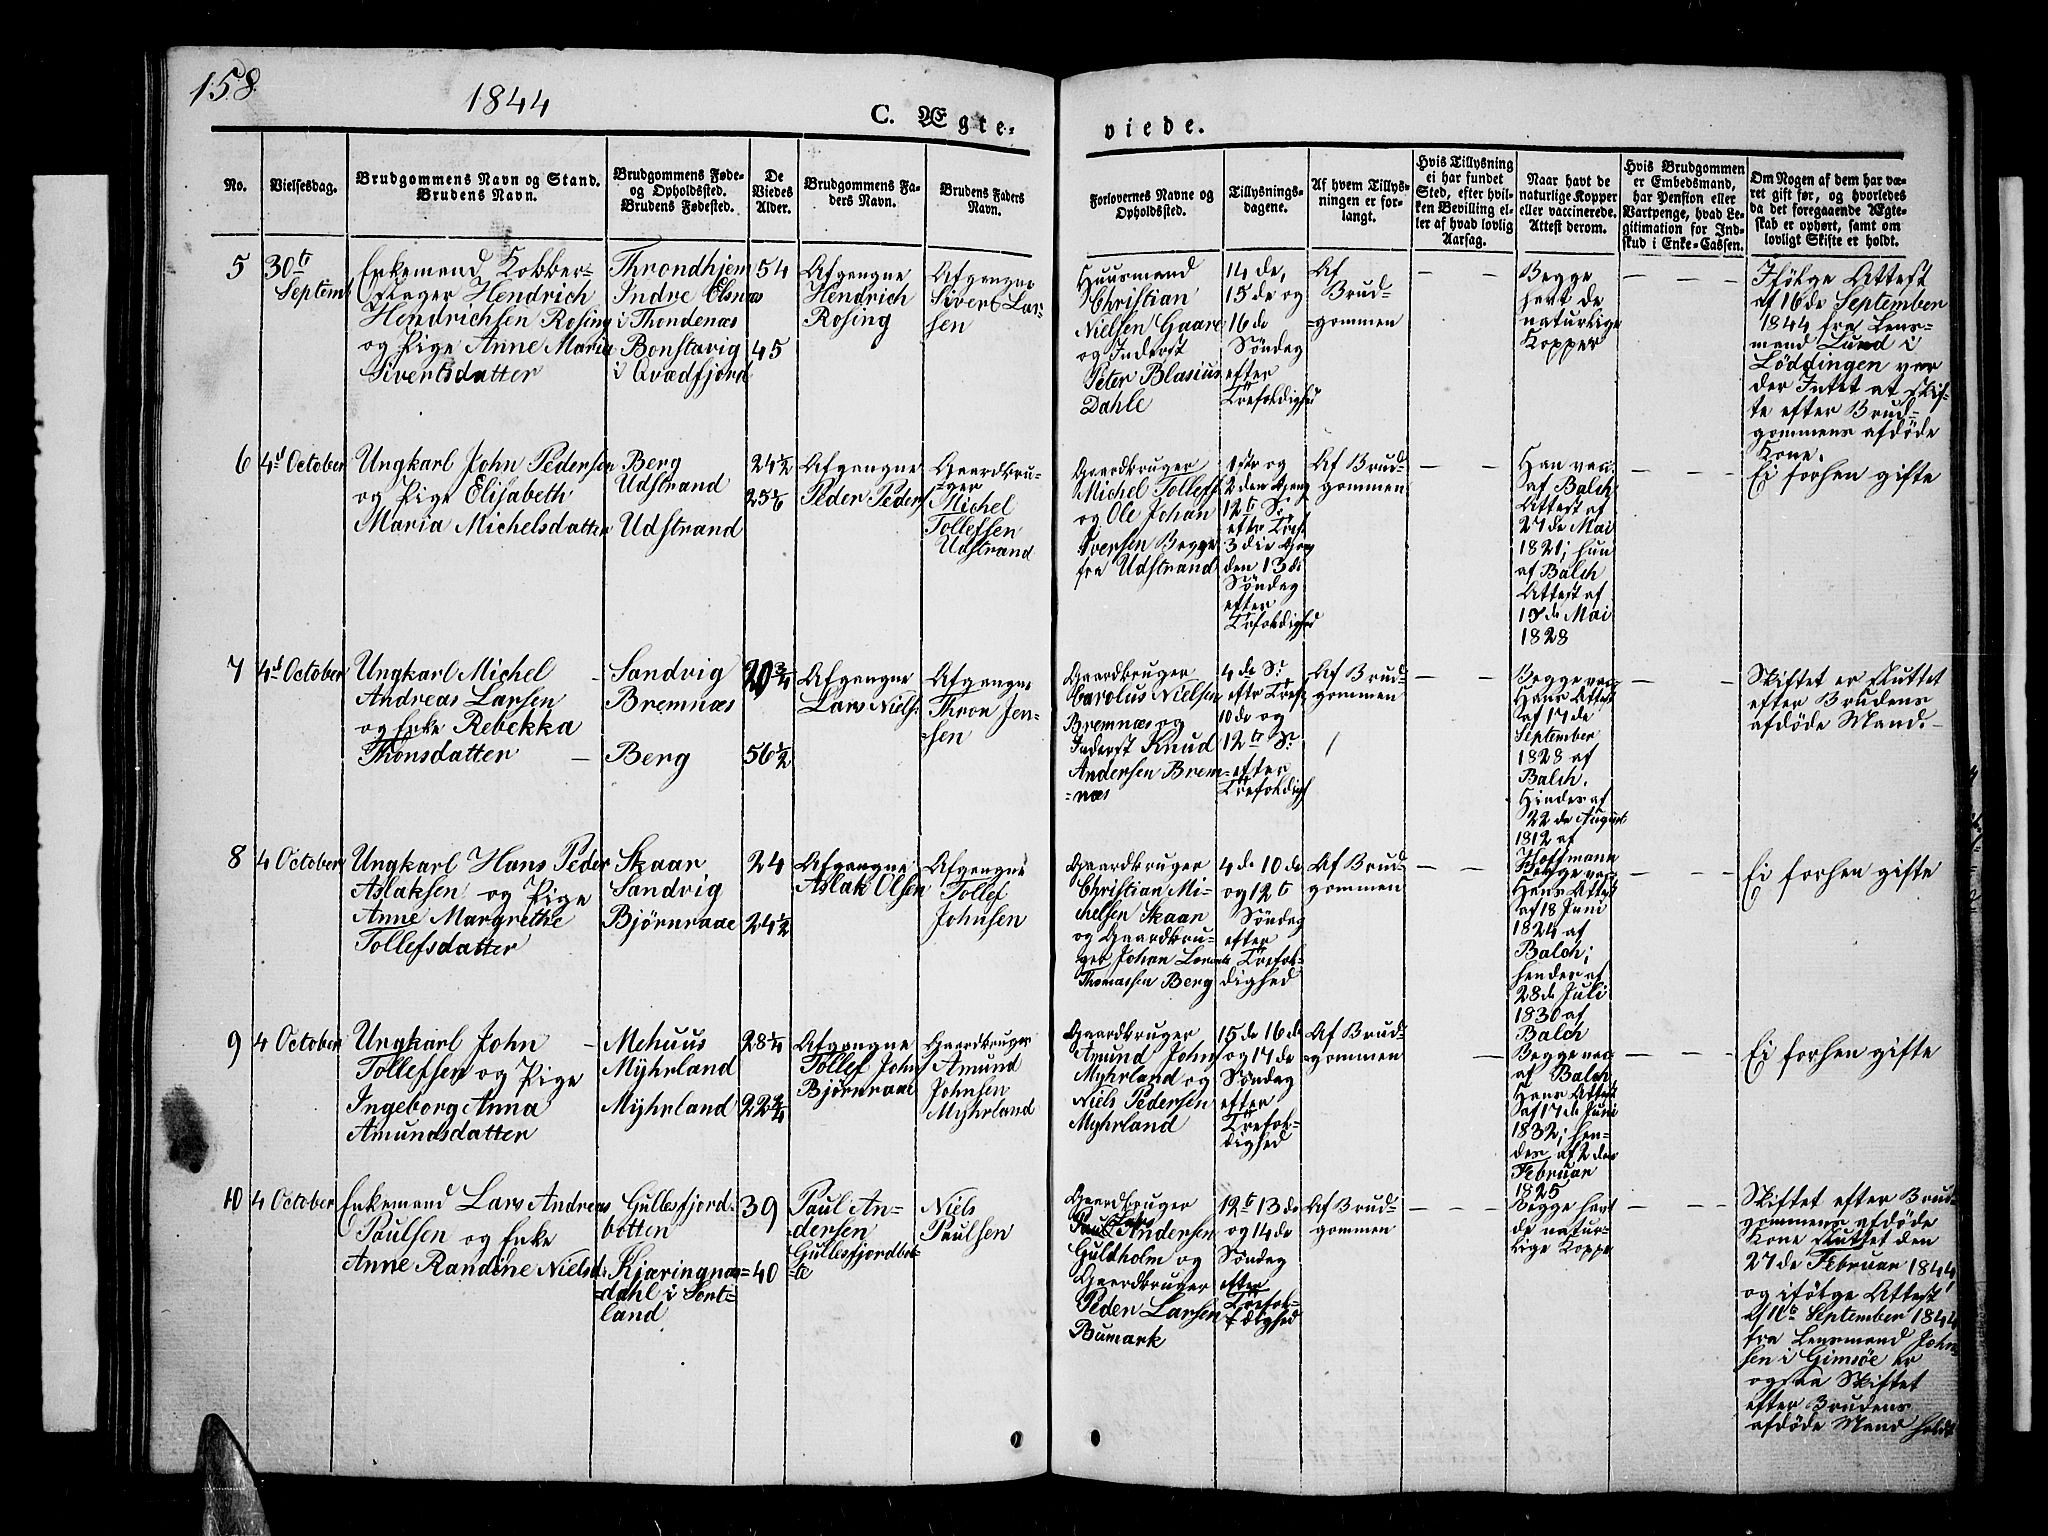 158
1844
C. Ægte-
viede.
No.
Vielsesdag.
Brudgommens Navn og Stand.
Brudens Navn.
Brudgommens Føde-
og Opholdssted.
Brudens Fødested.
De
Viedes
Alder.
Brudgommens Fa-
ders Navn.
Brudens Faders
Navn.
Forlovernes Navne og
Opholdssted.
Tillysnings-
dagene.
Af hvem Tillys-
ningen er for-
langt.
Hvis Tillysning
ei har fundet
Sted, efter hvil-
ken Bevilling el-
ler af hvad lovlig
Aarsag.
Naar havt de
naturlige Kopper
eller vaccinerede.
Attest derom.
Hvis Brudgommen
er Embedsmand,
har Pension eller
Vartpenge, hvad Le-
gitimation for Ind-
skud i Enke-Cassen.
Om Nogen af dem har væ-
ret gift før, og hvorledes
da det foregaaende Ægte-
skab er ophørt, samt om
lovligt Skifte er holdt.
5
30te
Septemb
Enkemand Kobber-
slager Hendrich
Hendrichsen Rosing
og Pige Anne Maria
Sivertsdatter
Throndhjem
Indre Elsnæs
i Thondenæs
Bonstavig
i Qvædfjord
54
45
Afgangne
Hendrich
Rosing
Afgangne
Sivert Lar-
sen
Huusmand
Christian
Nielsen Gaare
og Inderst
Peter Blasius
Dahle
14de,
15de og
16de
Søndag
efter
Trefoldighed
Af
Brud-
=gommen
Begge
havt de
naturlige
Kopper
Ifølge Attest
af 16de September
1844 fra Lens-
mand Lund i
Löddingen var
der Intet at skif-
te efter Brud-
gommens afdöde
Kone.
6
4d October
Ungkarl John Pedersen
og Pige Elisabeth
Maria Michelsdatter
Berg
Udstrand
Udstrand
24½
25⅙
Afgangne
Peder Peders
Gaardbru-
ger
Michel
Tollefsen
Udstrand
Gaardbruger
Michel Tollefs
og Ole Johan
Iversen Begge
fra Udstrand
1ste og
2den Gang
12te S.
eftr Tref.
3die Gang
den 13de
Søndag
efter
Trefoldighed
Af Brud-
gommen
Han vac.
af Balch
Attest af
27de Mai
1821; hun
af Balch
Attest af
17de Mai
1828
Ei forhen gifte
7
4d October
Ungkarl Michel
Andreas Larsen
og Enke Rebekka
Thonsdatter
Sandvig
Bremnæs
Berg
20¾
56½
Afgangne
Lars Niels.
Afgangne
Thron Jen-
=sen
Gaardbruger
Carolus Nielsen
Bremnæs og
Inderst Knud
Andersen Brem-
=næs
4de S.
eftr Tref.
10de og
12te S.
efter
Trefoldigh
Af Brud-
gommen
Begge vac.
Hans Attest
af 17de
September
1828 af
Balch.
Hindes af
22de August
1812 af
Hoffmann
Skiftet er sluttet
efter Brudens
afdøde Mand.
8
4 October
Ungkarl Hans Peder
Aslaksen og Pige
Anne Margrethe
Tollefsdatter
Skaar
Sandvig
Bjørnraae
24
24½
Afgangne
Aslak Olsen
Afgangne
Tollef
Johnsen
Gaardbruger
Christian Mi-
chelsen Skaar
og Gaardbru-
ger Johan
Thomassen Berg
4de 10de
og 12te
Søndag
efter
Trefol-
dighed
Af Brud-
gommen
Begge vac.
Hans Attest
af 18 Juni
1824 af
Balch;
hendes af
28de Juli
1830 af
Balch
Ei forhen gifte
9
4 October
Ungkarl John
Tollefsen og Pige
Ingeborg Anna
Amundsdatter
Mehuus
Myhrland
Myhrland
28¼
22¾
Afgangne
Tollef Johns
Bjørnraae
Gaardbruger
Amund
Johnsen
Myhrland
Gaardbruger
Amund Johns
Myhrland og
Niels Pedersen
Myhrland
15de 16de
og 17de
Søndag
efter
Trefol-
dighed
Af Brud-
gommen
Begge vac.
af Balch
Hans Attest
af 17de Juni
1832; hen-
des af 2den
Februar
1825
Ei forhen gifte
10
4 October
Enkemand Lars Andreas
Paulsen og Enke
Anne Randine Nielsd.
Gullesfjord-
botten
Kjæringnæs=
=dahl i Sort-
land
39
40
Paul An-
dersen
Gullesfjordbot-
=te
Niels
Paulsen
Gaardbruger
Andersen
Guldholm og
Gaardbruger
Peder Larsen
Bumark
12te 13de
og 14de
Søndag
efter
Trefol-
dighed
Af Brud-
gommen
Begge havt
de natur-
lige Kopper
Skiftet efter Brud-
gommens afdöde
Kone sluttet den
27de Februar 1844
og ifölge Attest
af 10de September 1844
fra Lensmand John-
sen i Gimsøe er
ogsaa Skiftet
efter Brudens
afdöde Mand holdt